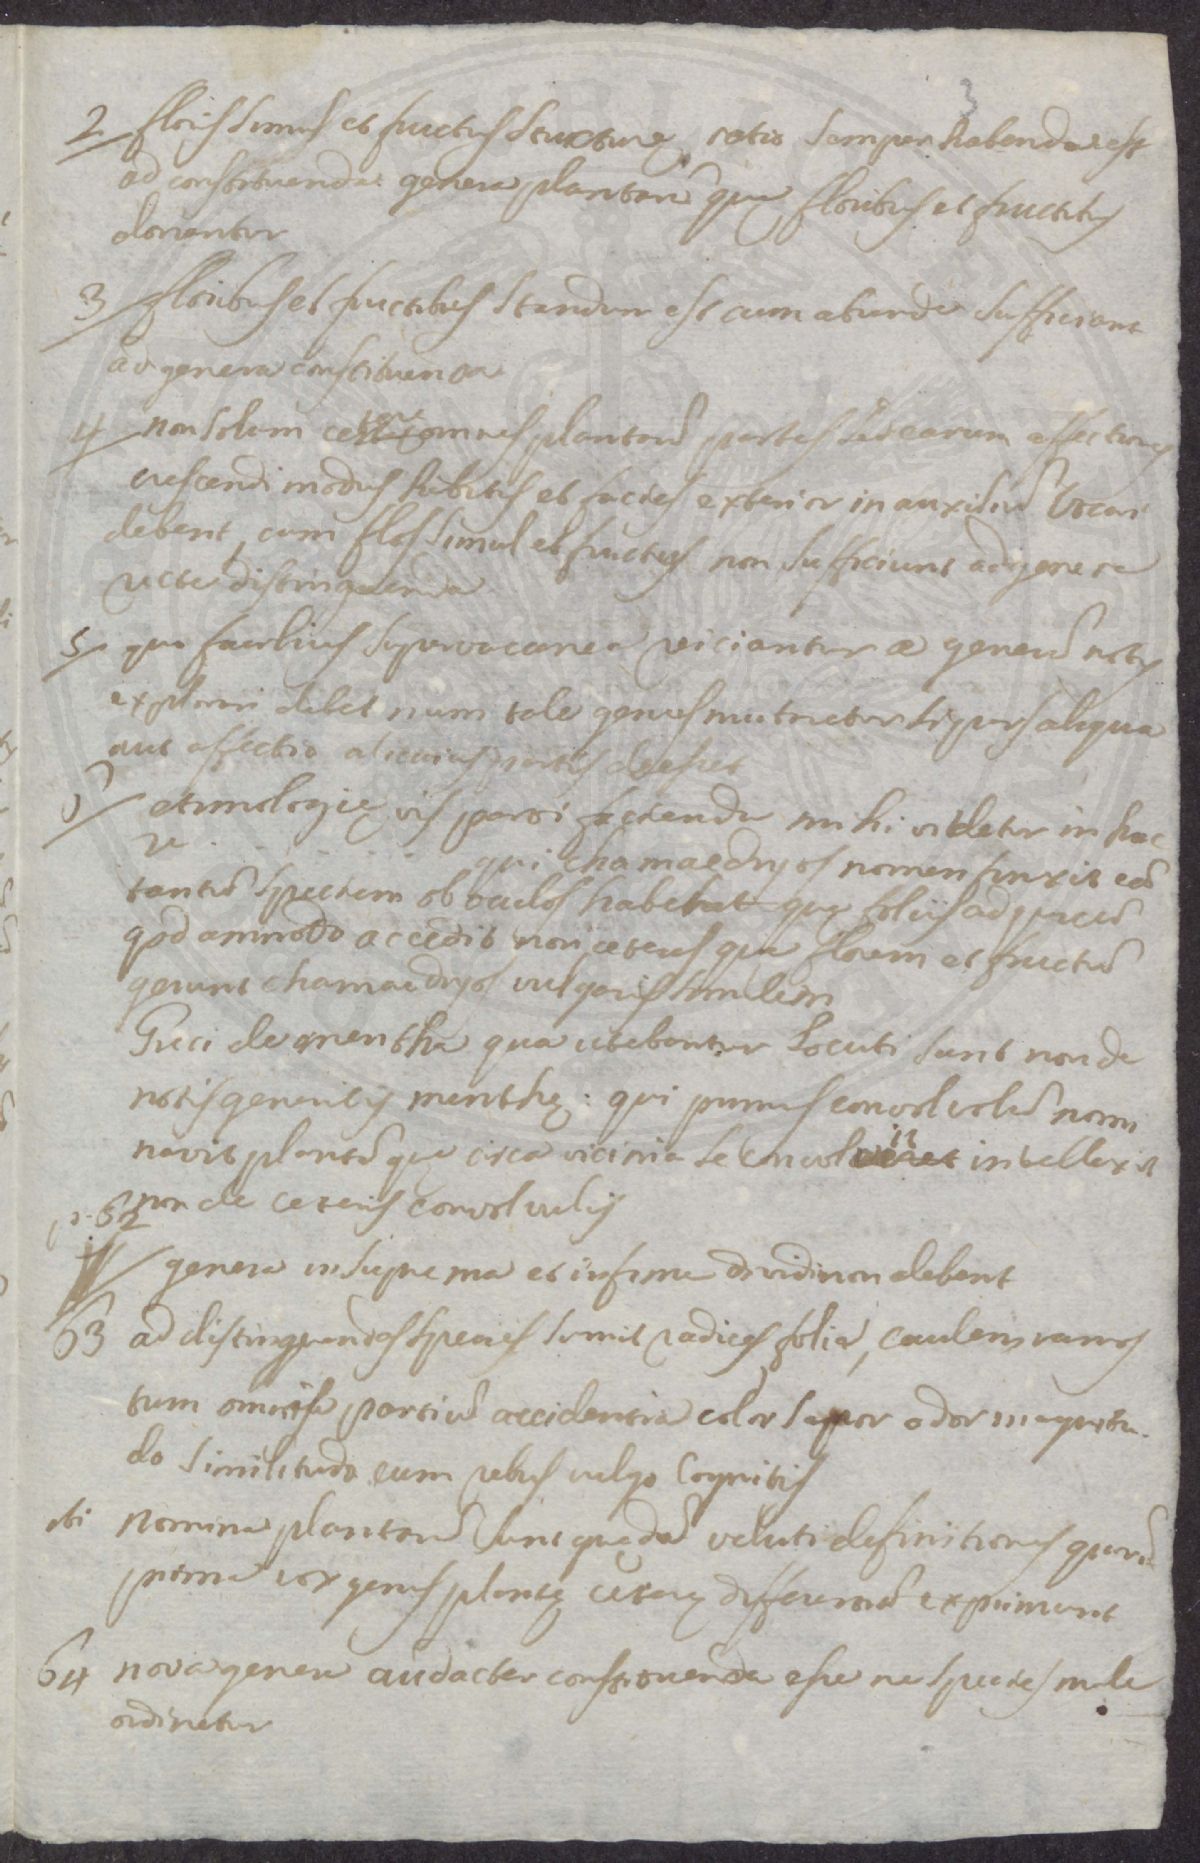 3
2 floris simul et fructus structuræ ratio semper habenda est
ad constituenda genera plantarũ quæ floribus et fructibus
donentur
3 floribus et fructibus standum est cum abunde sufficiant
ad genera constituenda
4 non solum omnes plantarũ partes sed earum affectiones
crescendi modus habitus et facies exterior in auxiliũ vocari
debent, cum flos simul et fructus non sufficiunt ad genera
recte distinguenda
5 quo facilius supervacanea reiciantur a generũ notis
explorari debet num tale genus mutaretur si pars aliqua
aut affectio alicuius partis deesset
etimologiæ vis parvi facienda mihi videtur in hac
re qui chamaedryos nomen finxit eã
tantũ speciem ob oculos habebat quæ foliis ad quercũ
quodammodo accedit non ceteras quæ florem et fructũ
gerunt chamaedryos vulgaris similem
Greci de mentha qua utebantur locuti sunt non de
notis generis menthæ. qui primus convolvulũ nomi
navit plantã quæ circa vicinia se convolvit intellexit
non de ceteris convolvulis
p. 62
genera in suprema et infima dividi non debent
63 ad distinguendas species sumit radices folia, caulem ramos
tum omissa partiũ accidentia color sapor odor magnitu.
do similitudo cum rebus vulgo cognitis
ibi nomina plantarũ sunt quædã veluti definitiones quarũ
prima vox genus plantæ ceteræ differentiã exprimunt
64 nova genera audacter constituenda esse ne species male
ordinetur